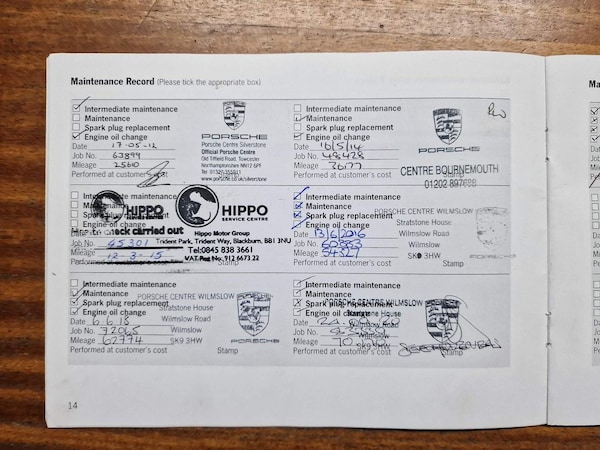 Maintenance Record (Please tick the appropriate box)
Intermediate maintenance
Maintenance
Spark plug replacement
Engine oil change
Date 17-05-12
Job No. 63899
Mileage 2560
Performed at customer's cost
PORSCHE
Porsche Centre Silverstone
Official Porsche Centre
Old Tiffield Road, Towcester
Northamptonshire NN12 6PF
www.porsche.co.uk/silverstone
Intermediate maintenance
Maintenance
Spark plug replacement
Engine oil change
Date 16/5/14
Job No. 48428
Mileage 36177
Performed at customer's cost
Stamp
PORSCHE
CENTRE BOURNEMOUTH
01202 897688
Intermediate maintenance
Spark
Engine
check carried out
Job No. 45301
Mileage 12-3-15
HIPPO
HIPPO
SERVICE CENTRE
Hippo Motor Group
Trident Park, Trident Way, Blackburn, BB1 3NU
Tel:0845 838 3661
VAT Reg No: 912 6673 22
Intermediate maintenance
Maintenance
Spark plug replacement
Engine oil change
Date 13/6/2016
Job No. 60883
Mileage 54327
Performed at customer's cost
Stamp
PORSCHE CENTRE WILMSLOW
Stratstone House
Wilmslow Road
Wilmslow
SK9 3HW
Intermediate maintenance
Maintenance
Spark plug replacement
Engine oil change
Date 6 6 18
Job No. 72065
Mileage 62774
Performed at customer's cost
Stamp
PORSCHE CENTRE WILMSLOW
Stratstone House
Wilmslow Road
Wilmslow
SK9 3HW
PORSCHE
Intermediate maintenance
Maintenance
Spark plug replacement
Engine oil change
Date
Job No.
Mileage 70
Performed at customer's cost
Stamp
PORSCHE CENTRE WILMSLOW
Stratstone House
Wilmslow Road
Wilmslow
SK9 3HW
14
Ma